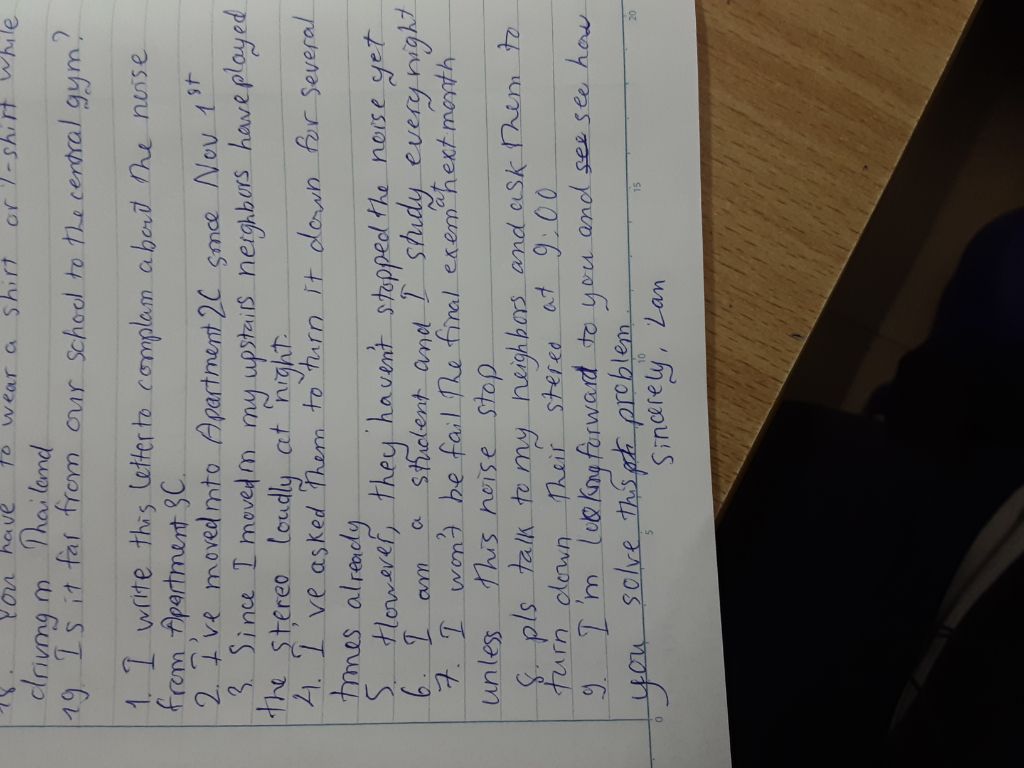 18. You have to wear a shirt or T-shirt while
driving in Thailand
19. Is it far from our school to the central gym?
1. I write this letter to complain about the noise
from Apartment 3C.
2. I've moved into Apartment 2C since Nov 1st
3. Since I moved in my upstais neighbors have played
the stereo loudly at night.
4. I've asked them to turn it down for several
times already
5. However, they haven't stopped the noise yet
6. I am a student and I study every night
7. I won't be fail the final exem at next month
unless this noise stop
8. pls talk to my neighbors and ask them to
turn down their stereo at 9:00
9. I'm looking forward to you and see see how
you solve this problem.
Sincerely, Lan
0 5 10 15 20